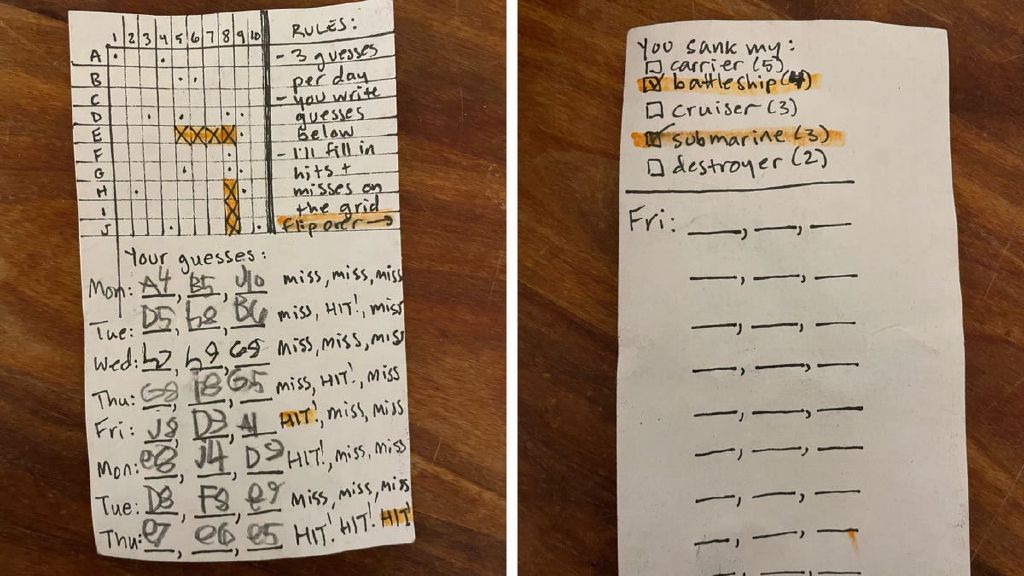 1 2 3 4 5 6 7 8 9 10
A
B
C
D
E
F
G
H
I
J
RULES:
- 3 guesses
per day
- you write
guesses
below
- I'll fill in
hits +
misses on
the grid
flip over →
Your guesses:
Mon: A4, B5, J10 miss, miss, miss
Tue: D5, h8, B6 miss, HIT!, miss
Wed: h2, h9, G9 miss, miss, miss
Thu: G8, I8, G5 miss, HIT!, miss
Fri: J8, D3, A1 HIT!, miss, miss
Mon: e8, J4, D9 HIT!, miss, miss
Tue: D8, F8, e9 miss, miss, miss
Thu: e7, e6, e5 HIT! HIT! HIT!
You sank my:
carrier (5)
battleship (4)
cruiser (3)
submarine (3)
destroyer (2)
Fri: